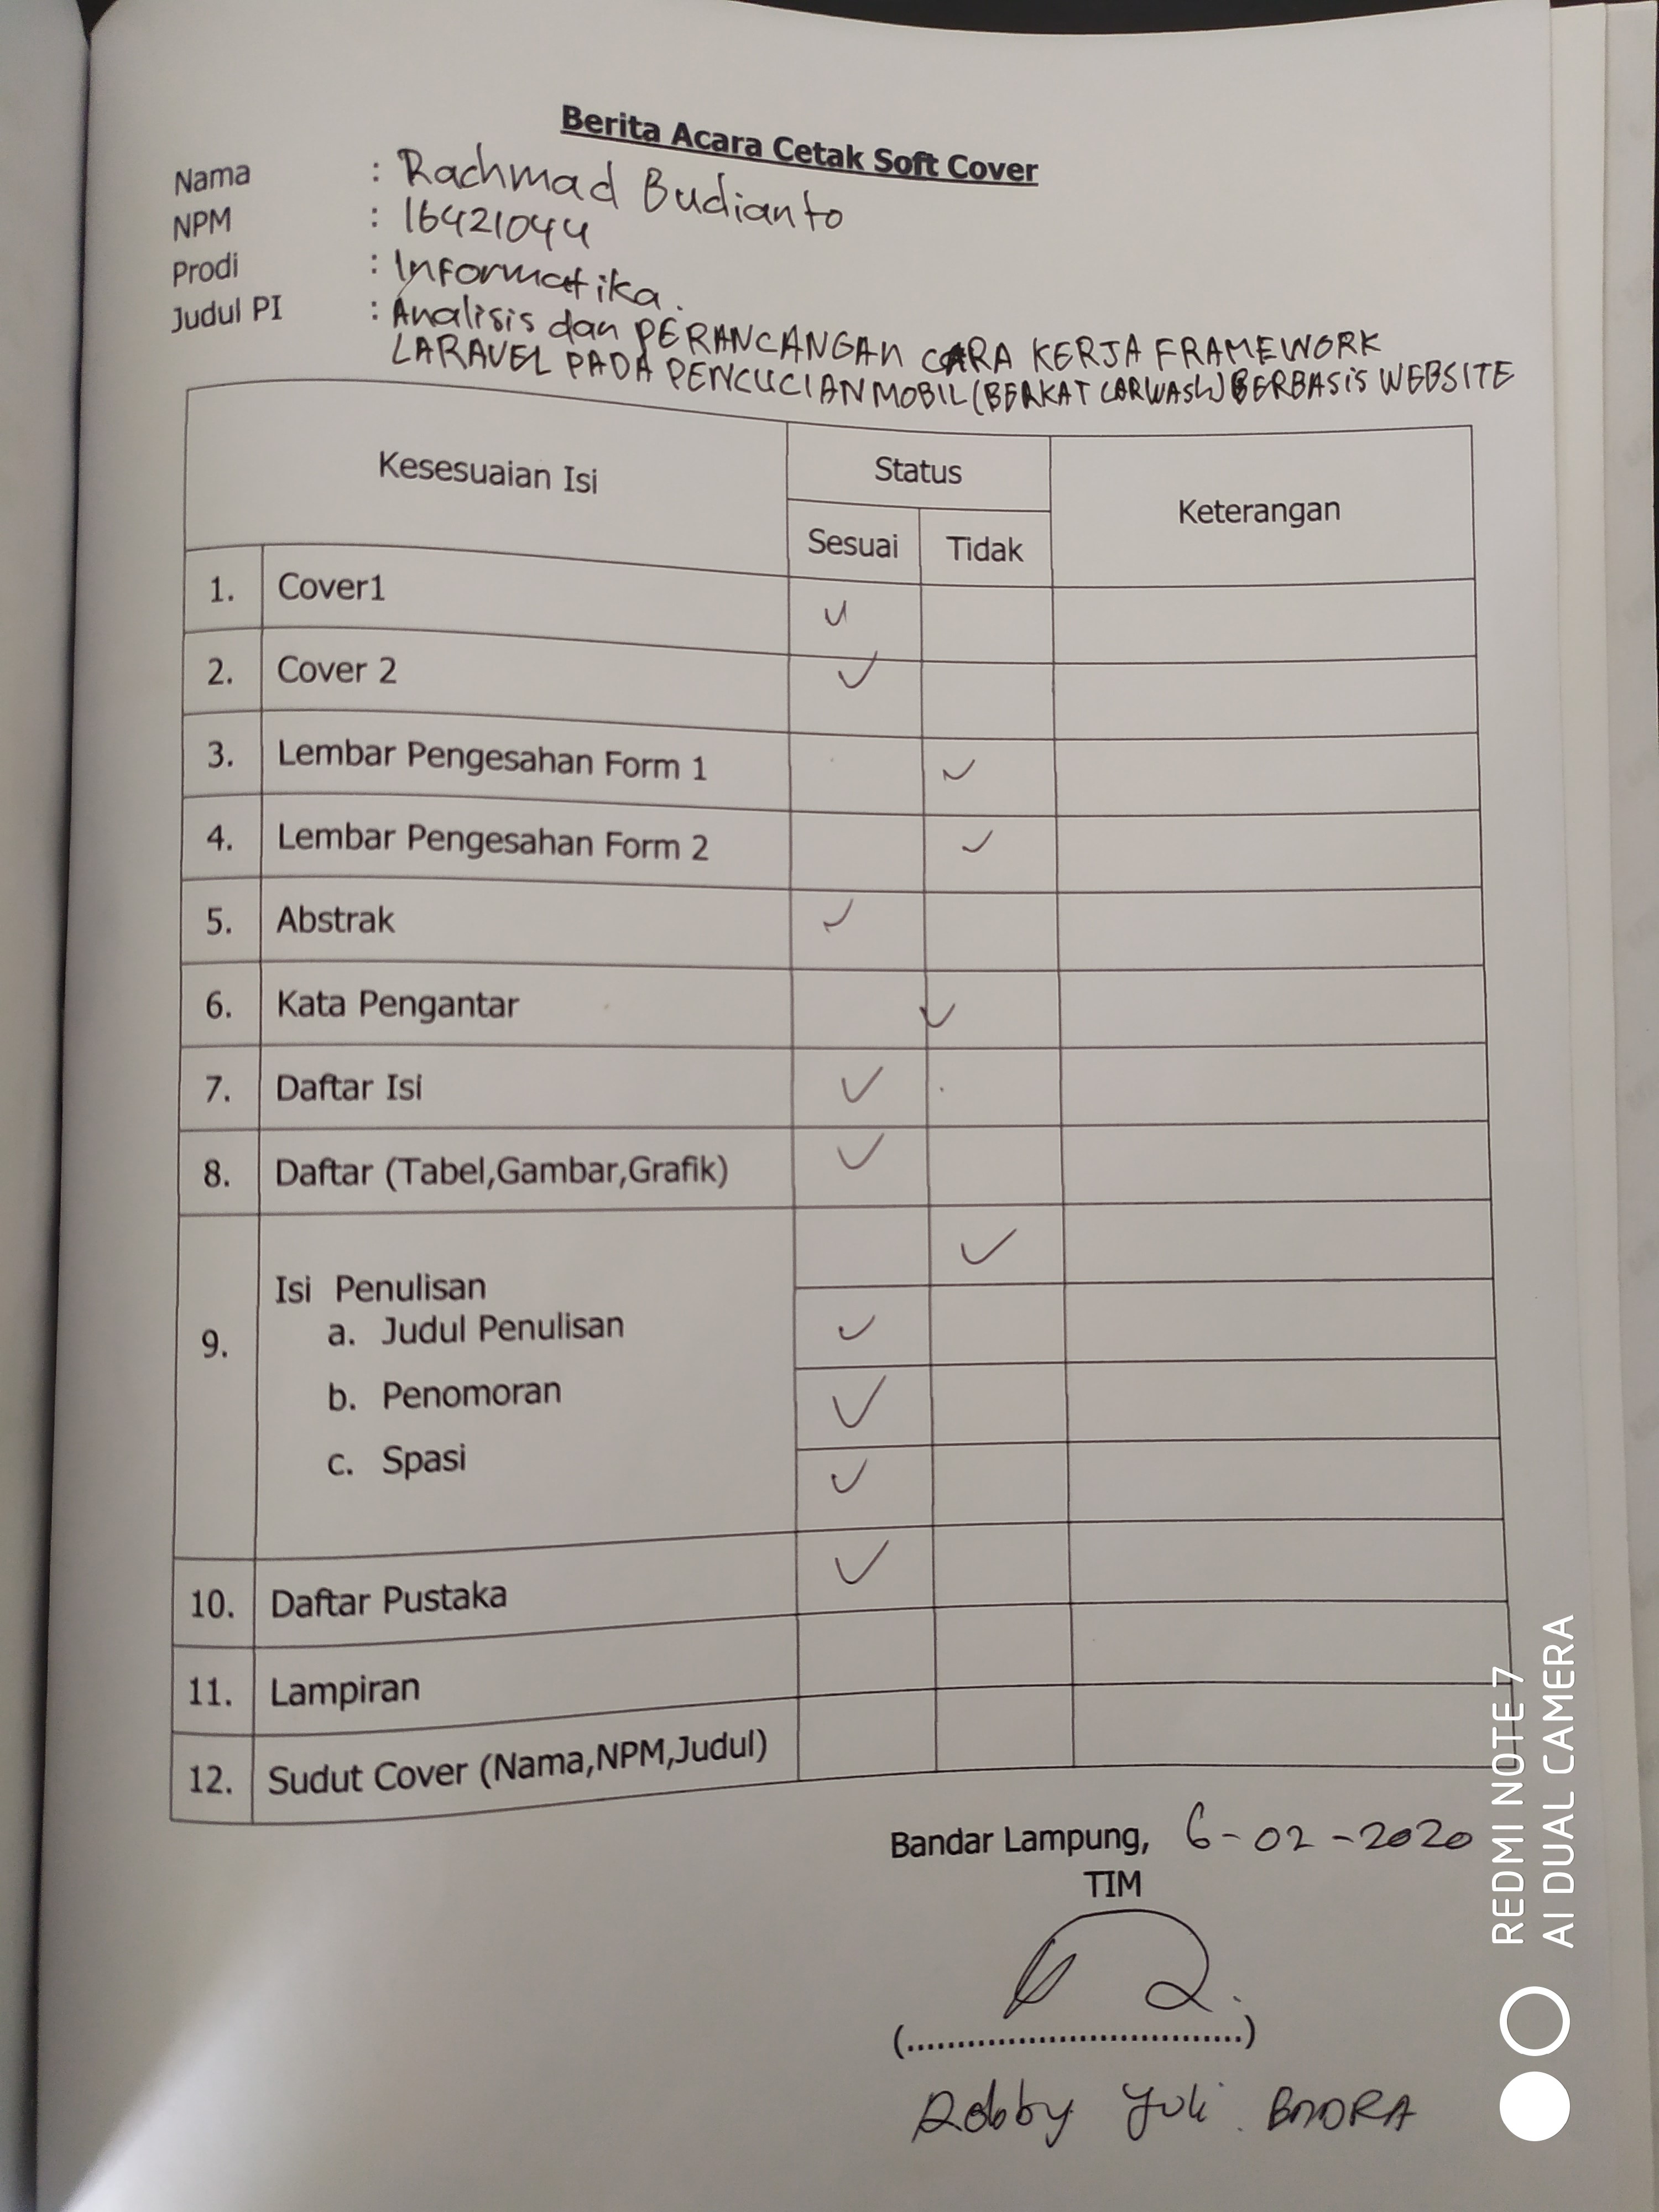 Berita Acara Cetak Soft Cover
Nama : Rachmad Budianto
NPM : 16421044
Prodi : Informatika.
Judul PI : Analisis dan PERANCANGAN CARA KERJA FRAMEWORK
LARAVEL PADA PENCUCIAN MOBIL (BERKAT CARWASH) BERBASIS WEBSITE
Kesesuaian Isi Status Keterangan
Sesuai Tidak
1. Cover1 ✓
2. Cover 2 ✓
3. Lembar Pengesahan Form 1 ✓
4. Lembar Pengesahan Form 2 ✓
5. Abstrak ✓
6. Kata Pengantar ✓
7. Daftar Isi ✓
8. Daftar (Tabel,Gambar,Grafik) ✓
9. Isi Penulisan ✓
a. Judul Penulisan ✓
b. Penomoran ✓
c. Spasi ✓
10. Daftar Pustaka ✓
11. Lampiran
12. Sudut Cover (Nama,NPM,Judul)
Bandar Lampung, 6-02-2020
TIM
(.................................)
Robby Yuli
REDMI NOTE 7
AI DUAL CAMERA